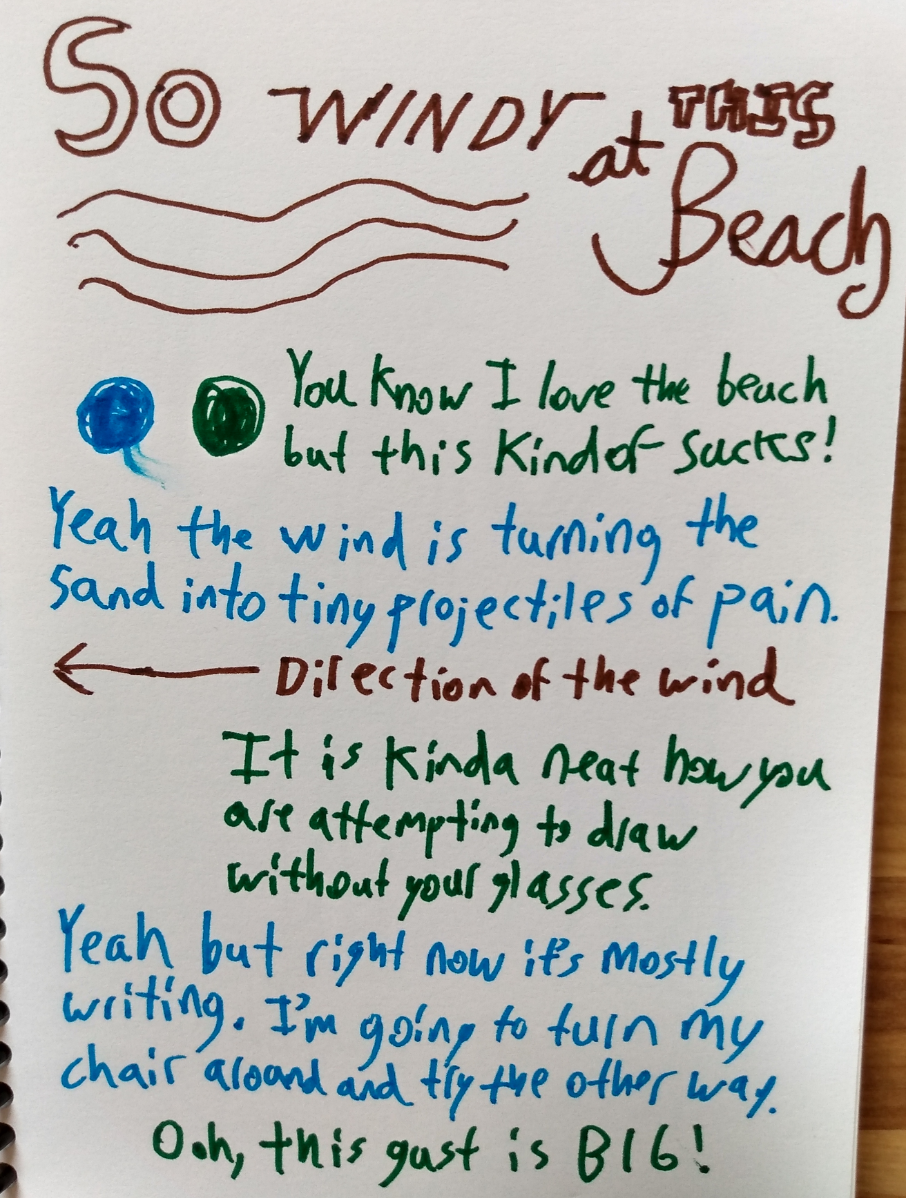 So WINDY at THIS Beach
You know I love the beach
but this kind of sucks!
Yeah the wind is turning the
sand into tiny projectiles of pain.
Direction of the wind
It is kinda neat how you
are attempting to draw
without your glasses.
Yeah but right now it's mostly
writing. I'm going to turn my
chair around and try the other way.
Ooh, this gust is BIG!